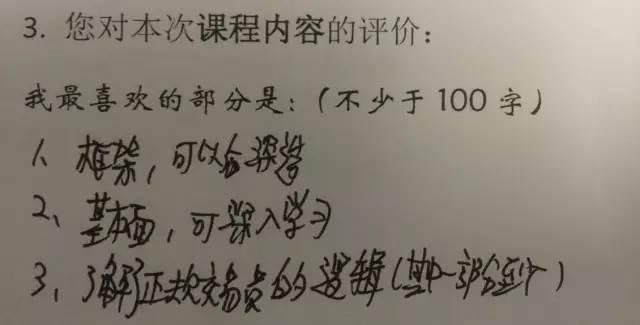 3. 您对本次课程内容的评价：
我最喜欢的部分是：（不少于 100 字）
1、框架，可以合深造
2、基本面，可深入学习
3、了解正规交易员的逻辑（其中一部分至少）